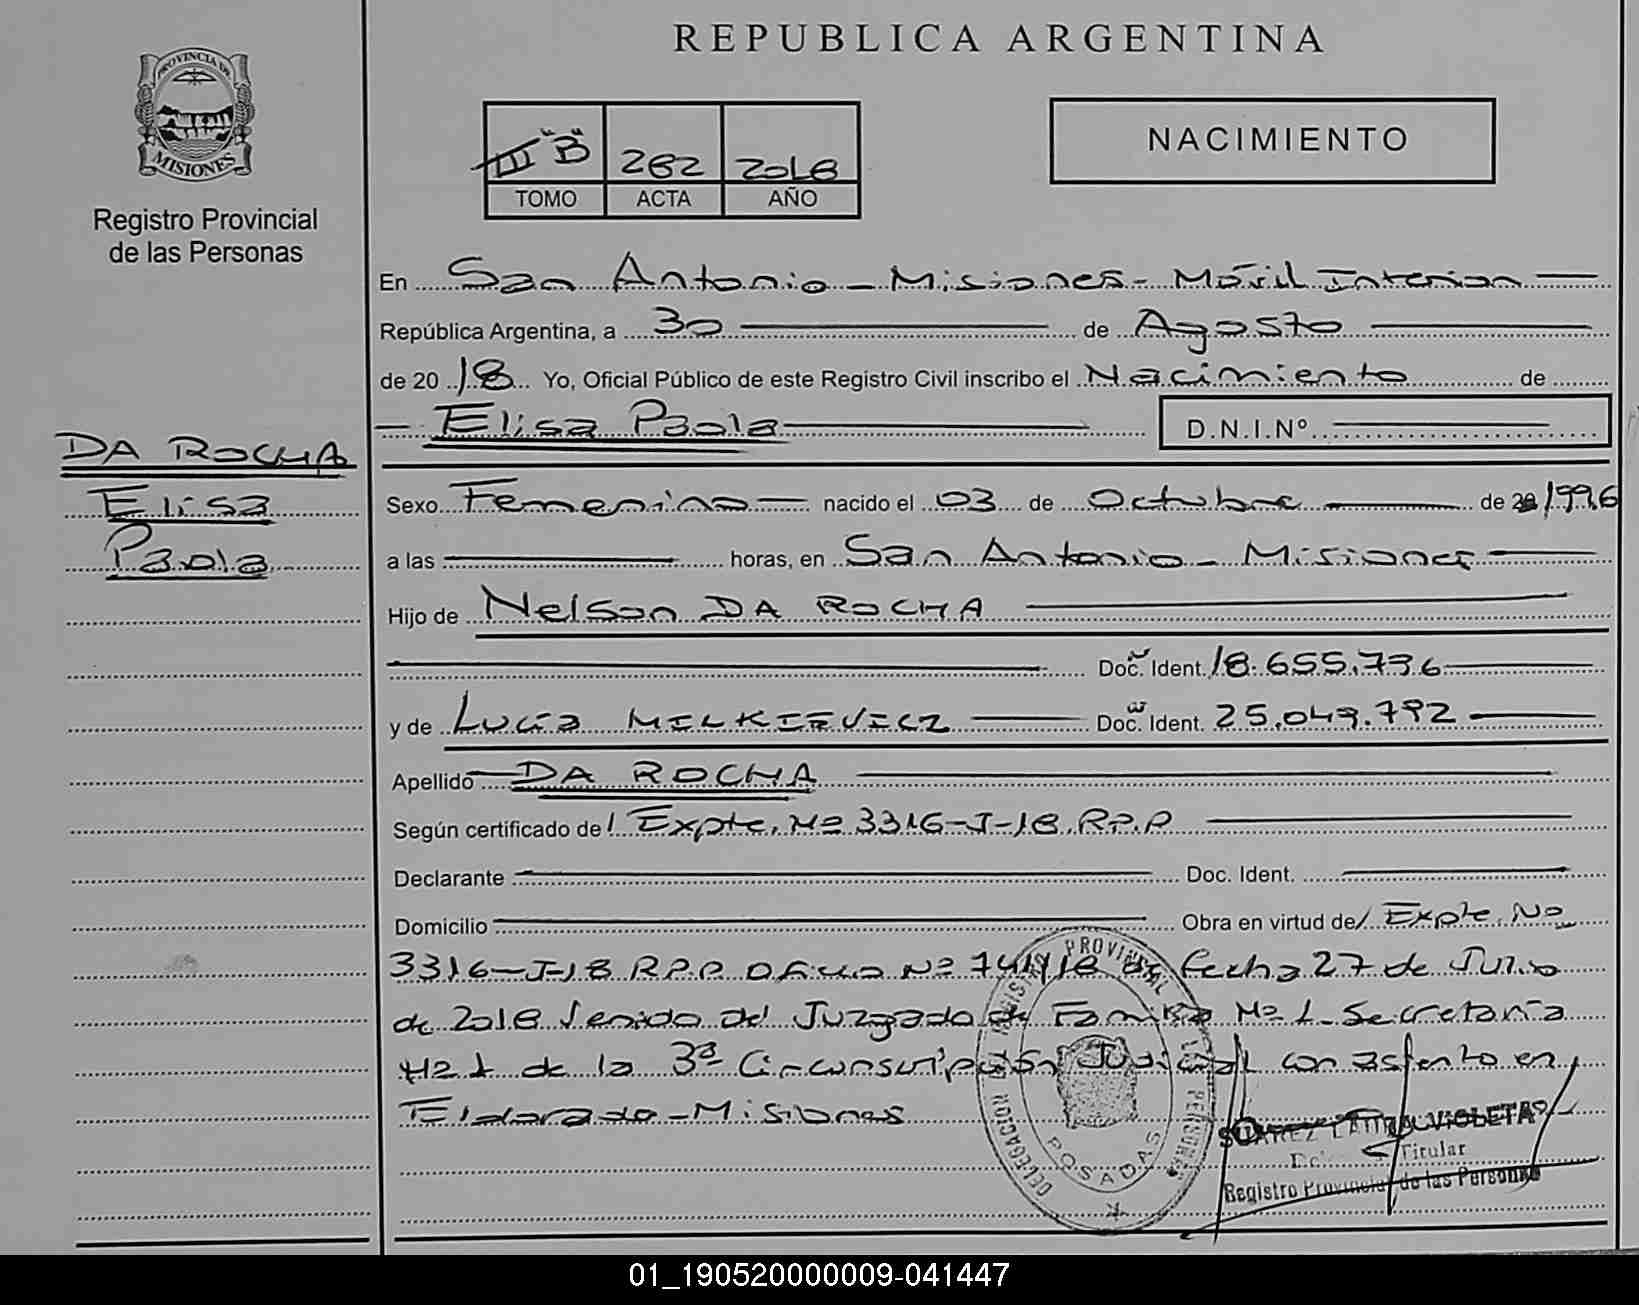 REPUBLICA ARGENTINA
PROVINCIA DE
MISIONES
Registro Provincial
de las Personas
III "B" 282 2018
TOMO ACTA AÑO
NACIMIENTO
En San Antonio - Misiones - Móvil Interior
República Argentina, a 30 de Agosto
de 20 18 Yo, Oficial Público de este Registro Civil inscribo el Nacimiento de
Elisa Paola D.N.I.Nº
DA ROCHA
Elisa
Paola
Sexo Femenino nacido el 03 de Octubre de 1996
a las horas, en San Antonio - Misiones
Hijo de Nelson DA ROCHA
Doc. Ident. 18.655.736
y de Lucía MILKIEVICZ Doc. Ident. 25.049.792
Apellido DA ROCHA
Según certificado de Expte. Nº 3316-J-18 R.P.P
Declarante Doc. Ident.
Domicilio Obra en virtud de Expte. Nº
3316-J-18 R.P.P Oficio Nº de fecha 27 de Julio
de 2018 venido del Juzgado de Familia Nº 1 Secretaría
Nº 1 de la 3ª Circunscripción Judicial con asiento en
Eldorado - Misiones
DELEGACION REGISTRO PROVINCIAL DE LAS PERSONAS
POSADAS
SUAREZ LAURA VIOLETA
Titular
Registro Provincial de las Personas
01_190520000009-041447